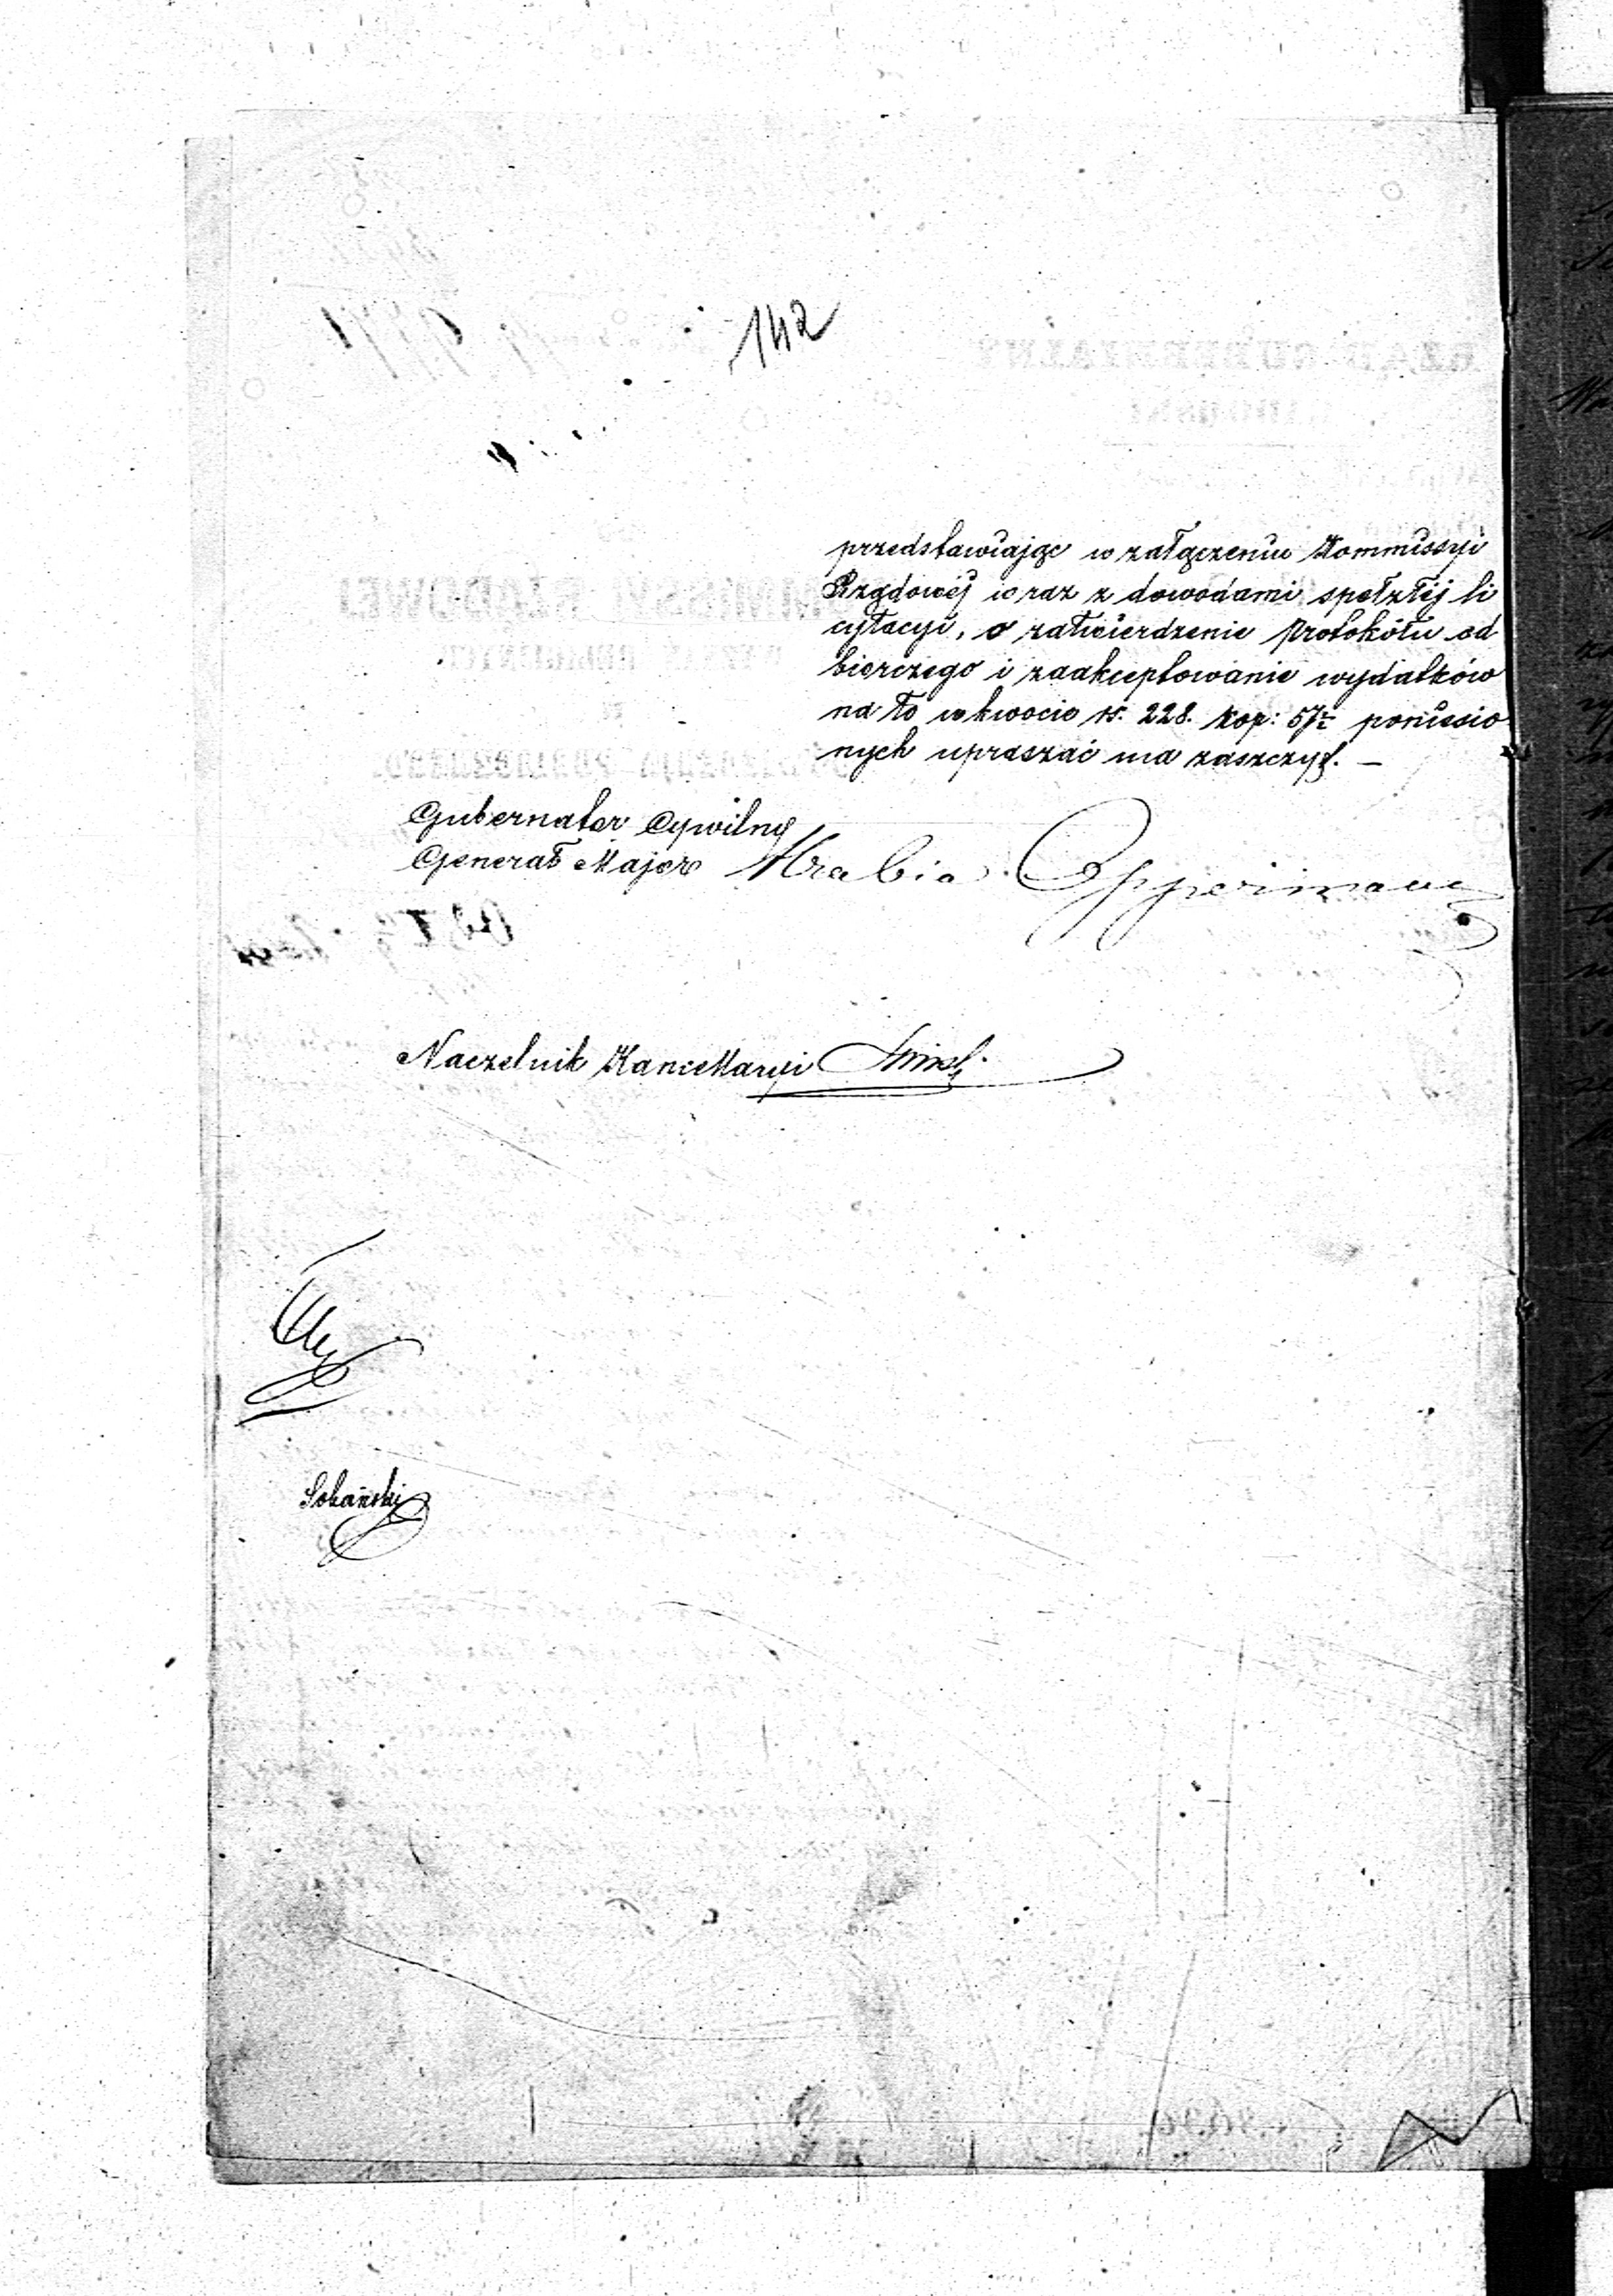 142
przedstawiając w załączeniu Kommissyi
Rządowéj wraz z dowodami spełzłéj li
cytacyi, o zatwierdzenie Protokółu od
bierczego i zaakceptowanie wydatków
na to w kwocie rs. 228. kop: 57½ poniesio
nych upraszać ma zaszczyt. —
Gubernator Cywilny
Generał Major Hrabia Opperman
Naczelnik Kancellaryi